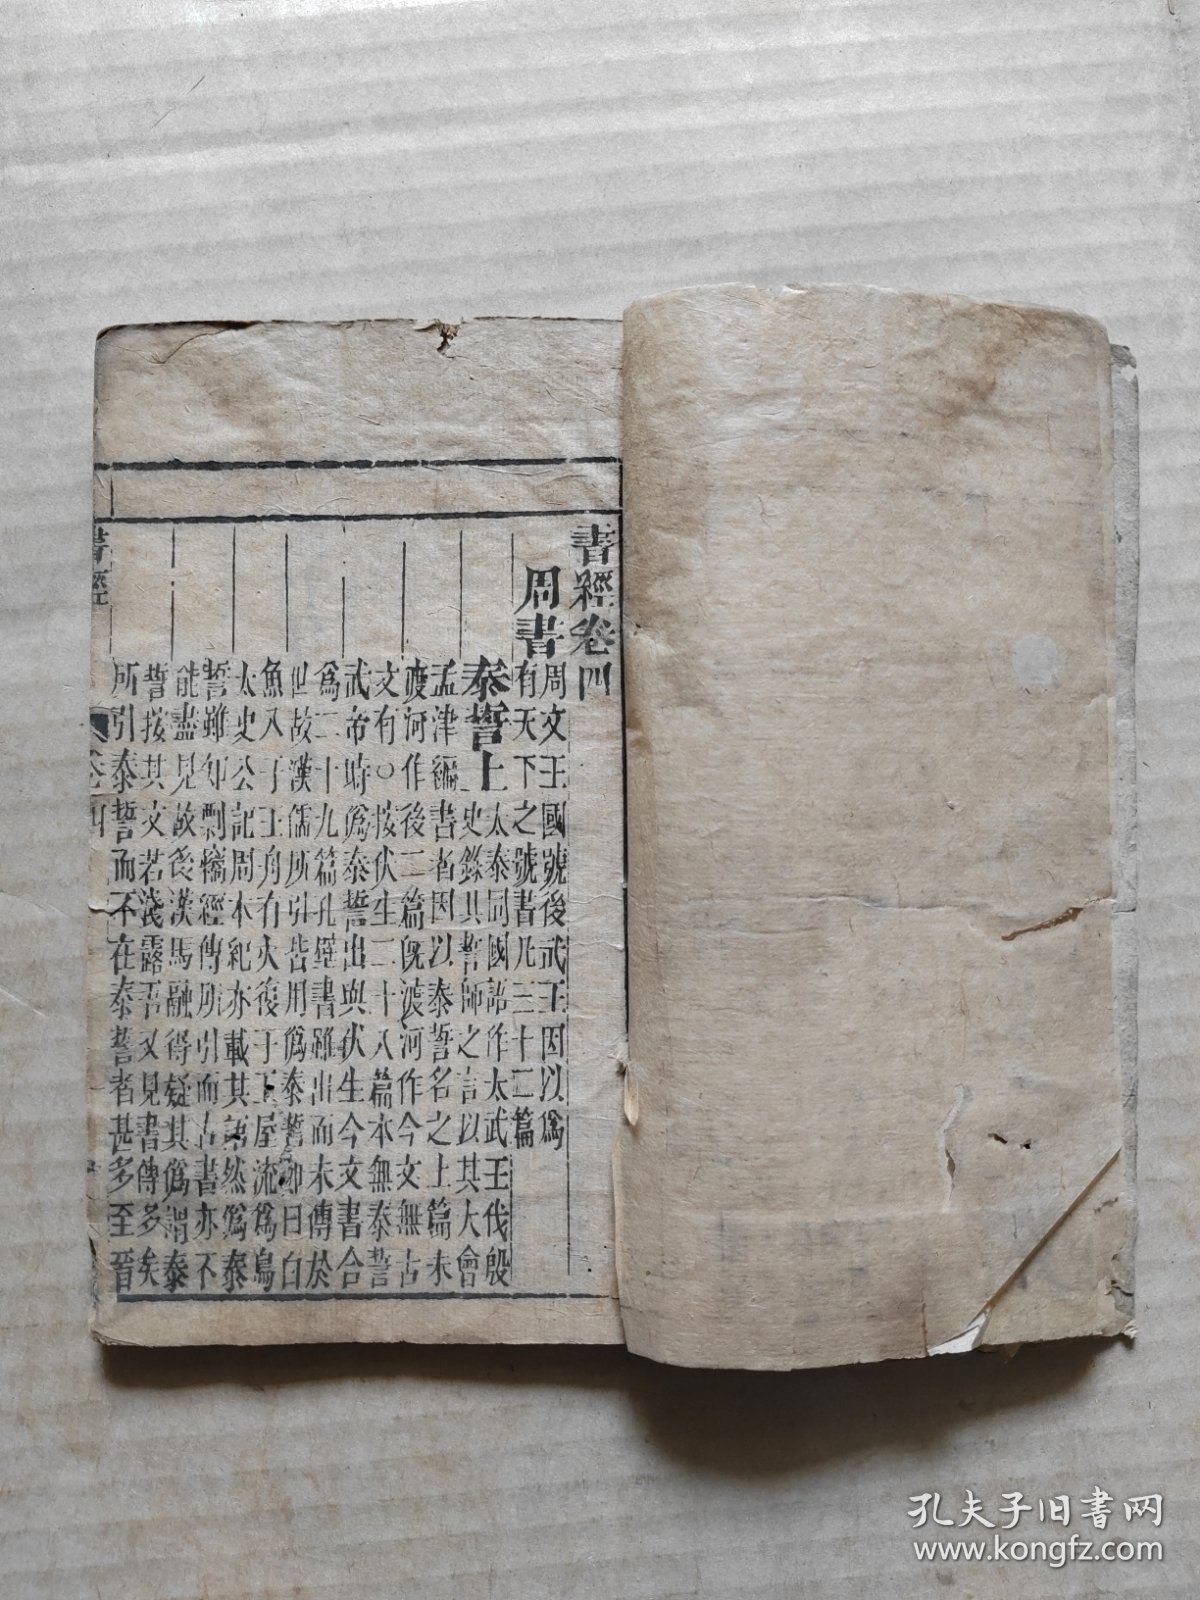 書經卷四
周書
周文王國號後武王因以爲
有天下之號書凡三十二篇
泰誓上
太泰同國語作太武王伐殷
史錄其誓師之言以其大會
孟津編書者因以泰誓名之上篇未
渡河作後二篇旣渡河作今文無古
文有○按伏生二十八篇本無泰誓
武帝時僞泰誓出與伏生今文書合
爲二十九篇孔壁書雖出而未傳於
世故漢儒所引皆用僞泰誓如曰白
魚入于王舟有火復于王屋流爲烏
太史公記周本紀亦載其語然僞泰
誓雖知剽竊經傳所引而古書亦不
能盡見故後漢馬融得疑其僞謂泰
誓按其文若淺露吾又見書傳多矣
所引泰誓而不在泰誓者甚多至晉
書經
卷四
孔夫子旧书网
www.kongfz.com